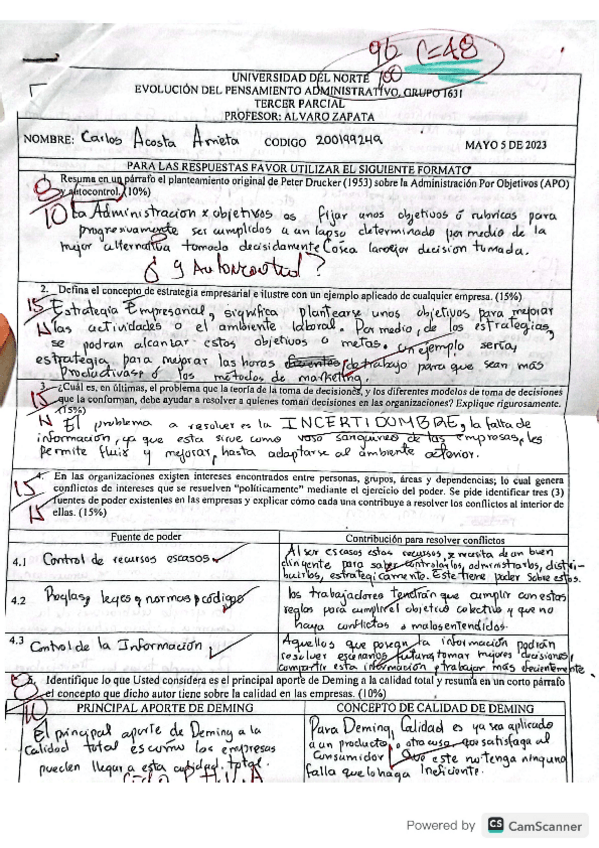 96 C=48
100
UNIVERSIDAD DEL NORTE
EVOLUCIÓN DEL PENSAMIENTO ADMINISTRATIVO. GRUPO 1631
TERCER PARCIAL
PROFESOR: ALVARO ZAPATA
NOMBRE: Carlos Acosta Arrieta CODIGO 200199249 MAYO 5 DE 2023
PARA LAS RESPUESTAS FAVOR UTILIZAR EL SIGUIENTE FORMATO
Resuma en un párrafo el planteamiento original de Peter Drucker (1953) sobre la Administración Por Objetivos (APO)
y autocontrol. (10%)
8
10 La Administracion x objetivos es fijar unos objetivos ó rubricas para
progresivamente ser cumplidos a un lapso determinado por medio de la
mejor alternativa tomada decisidamente
¿ y Autocontrol?
2. Defina el concepto de estrategia empresarial e ilustre con un ejemplo aplicado de cualquier empresa. (15%)
15 Estrategia Empresarial, significa plantearse unos objetivos para mejorar
las actividades o el ambiente laboral. Por medio, de los estrategias,
se podran alcanzar estos objetivos o metas. un ejemplo seria,
estrategia para mejorar las horas de trabajo para que sean más
productivas ó los métodos de marketing.
3. ¿Cuál es, en últimas, el problema que la teoría de la toma de decisiones, y los diferentes modelos de toma de decisiones
que la conforman, debe ayudar a resolver a quienes toman decisiones en las organizaciones? Explique rigurosamente.
(15%)
15 El problema a resolver es la INCERTIDOMBRE, y la falta de
información, ya que esta sirve como vaso sanguineo de las empresas, les
permite fluir y mejorar, hasta adaptarse al ambiente
4. En las organizaciones existen intereses encontrados entre personas, grupos, áreas y dependencias; lo cual genera
conflictos de intereses que se resuelven “políticamente” mediante el ejercicio del poder. Se pide identificar tres (3)
fuentes de poder existentes en las empresas y explicar cómo cada una contribuye a resolver los conflictos al interior de
ellas. (15%)
15
15
Fuente de poder Contribución para resolver conflictos
4.1 Control de recursos escasos Al ser escasos estos recursos, necesita de un buen
dirigente para saber controlarlos, administrarlos, distri-
buirlos, estrategicamente. Este tiene poder sobre estos.
4.2 Reglas, leyes y normas, código los trabajadores tendrán que cumplir con estas
reglas para cumplir el objetivo colectivo y que no
haya conflictos o malosentendidos.
4.3 Control de la Información Aquellos que posean la información podrán
resolver escenarios futuros, tomar mejores decisiones y
compartir esta información y trabajar más
5. Identifique lo que Usted considera es el principal aporte de Deming a la calidad total y resuma en un corto párrafo
el concepto que dicho autor tiene sobre la calidad en las empresas. (10%)
8
10
PRINCIPAL APORTE DE DEMING CONCEPTO DE CALIDAD DE DEMING
El principal aporte de Deming a la
Calidad total es como las empresas
pueden llegar a esta calidad total.
Para Deming, Calidad es ya sea aplicado
a un producto, o otra cosa, que satisfaga al
Consumidor y que este no tenga ninguna
falla que lo haga Ineficiente.
Powered by CS CamScanner